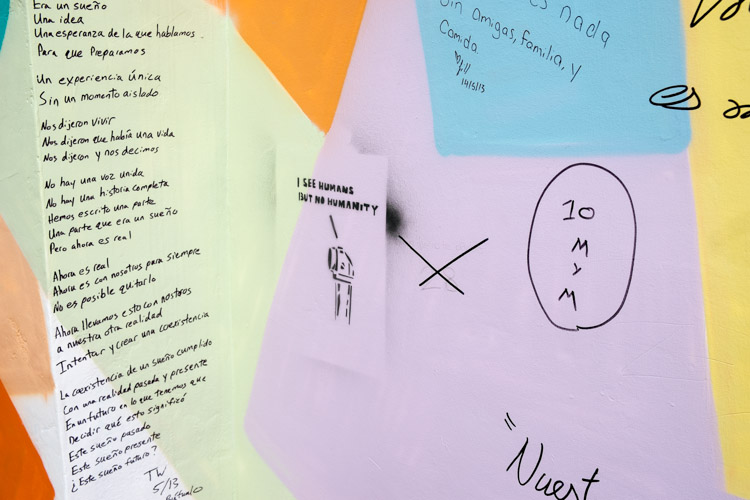 Era un sueño
Una idea
Una esperanza de la que hablamos.
Para que Preparamos
Un experiencia única
Sin un momento aislado
Nos dijeron vivir
Nos dijeron que había una vida
Nos dijeron y nos decimos
No hay una voz unida
No hay una historia completa
Hemos escrito una parte
Una parte que era un sueño
Pero ahora es real
Ahora es real
Ahora es con nosotros para siempre
No es posible quitarlo
Ahora llevamos esto con nostros
a nuestra otra realidad
Intentar y crear una coexistencia
La coexistencia de un sueño cumplido
Con una realidad pasada y presente
En un futuro en lo que tenemos que
Decidir qué esto significó
Este sueño pasado
Este sueño presente
¿Este sueño futuro?
TW
5/13
I SEE HUMANS
BUT NO HUMANITY
es nada
Sin amigas, familia, y
Comida
14/5/13
es
10
M
y
M
"Nuest